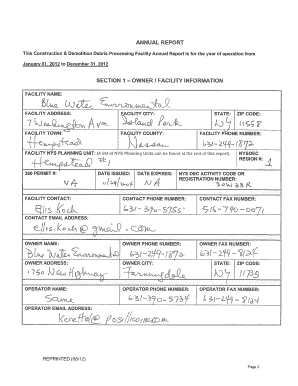 ANNUAL REPORT
This Construction & Demolition Debris Processing Facility Annual Report is for the year of operation from
January 01, 2012 to December 31, 2012
SECTION 1 – OWNER / FACILITY INFORMATION
FACILITY NAME:
Blue Water Environmental
FACILITY ADDRESS: FACILITY CITY: STATE: ZIP CODE:
7 Washington Ave Island Park NY 11558
FACILITY TOWN: FACILITY COUNTY: FACILITY PHONE NUMBER:
Hempstead Nassau 631-249-1872
FACILITY NYS PLANNING UNIT: (A list of NYS Planning Units can be found at the end of this report). NYSDEC REGION #: 1
Hempstead #1
360 PERMIT #: DATE ISSUED: DATE EXPIRES: NYS DEC ACTIVITY CODE OR REGISTRATION NUMBER:
NA NA 30W33R
FACILITY CONTACT: CONTACT PHONE NUMBER: CONTACT FAX NUMBER:
Ellis Koch 631-390-5755 516-740-0071
CONTACT EMAIL ADDRESS:
ellis.koch@gmail.com
OWNER NAME: OWNER PHONE NUMBER: OWNER FAX NUMBER:
Blue Water Environmental 631-249-1872 631-249-8124
OWNER ADDRESS: OWNER CITY: STATE: ZIP CODE:
1750 New Highway Farmingdale NY 11735
OPERATOR NAME: OPERATOR PHONE NUMBER: OPERATOR FAX NUMBER:
Same 631-390-5734 631-249-8124
OPERATOR EMAIL ADDRESS:
REPRINTED (05/12)
Page 2